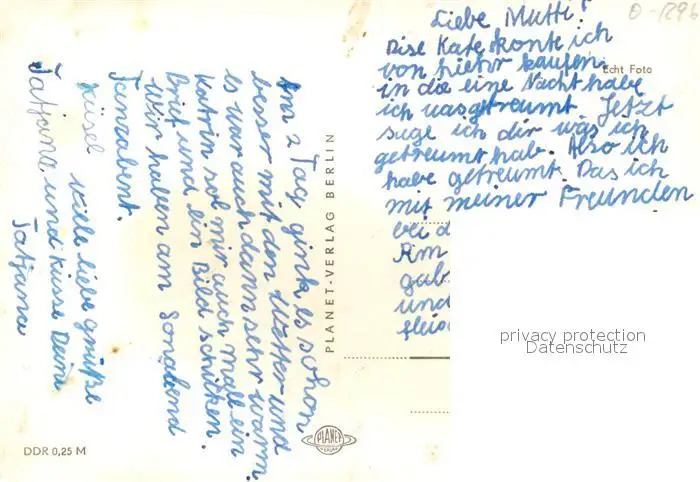 Liebe Mutti!
Dise Kate konte ich
von hiehr kaufen.
in da eine Nacht habe
ich uasgetreumt. Jetzt
suge ich dir was ich
getreumt hab. Also ich
habe getreumt. Das ich
mit meiner Freunden
bei d
Am
gab
und
fleis
Echt Foto
Am 2 Tag gink es schon
besser mit den Wetter und
es war auch dann sehr warm.
Katrin sol mir auch mall ein
Brief und ein Bild schicken.
Wir haben am Sonabend
Tanzabent.
Wille liebe grüße
küsel
Tatjana und küsse Deine
Tatjana
PLANET-VERLAG BERLIN
PLANET
VERLAG
DDR 0,25 M
privacy protection
Datenschutz